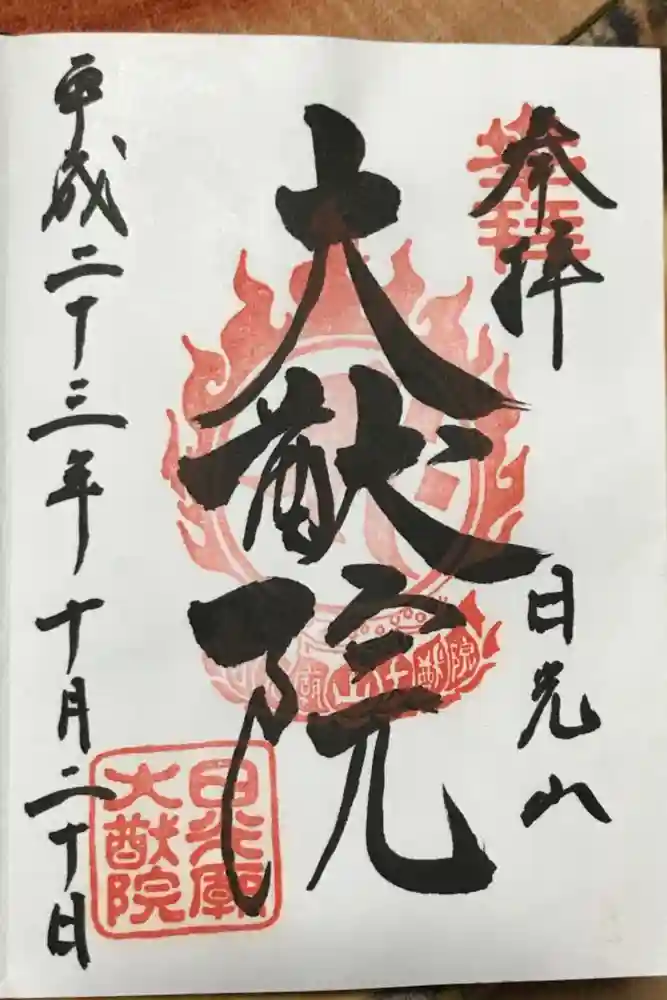 奉拝
日光山
大猷院
平成二十三年十月二十日
日光廟
大猷院